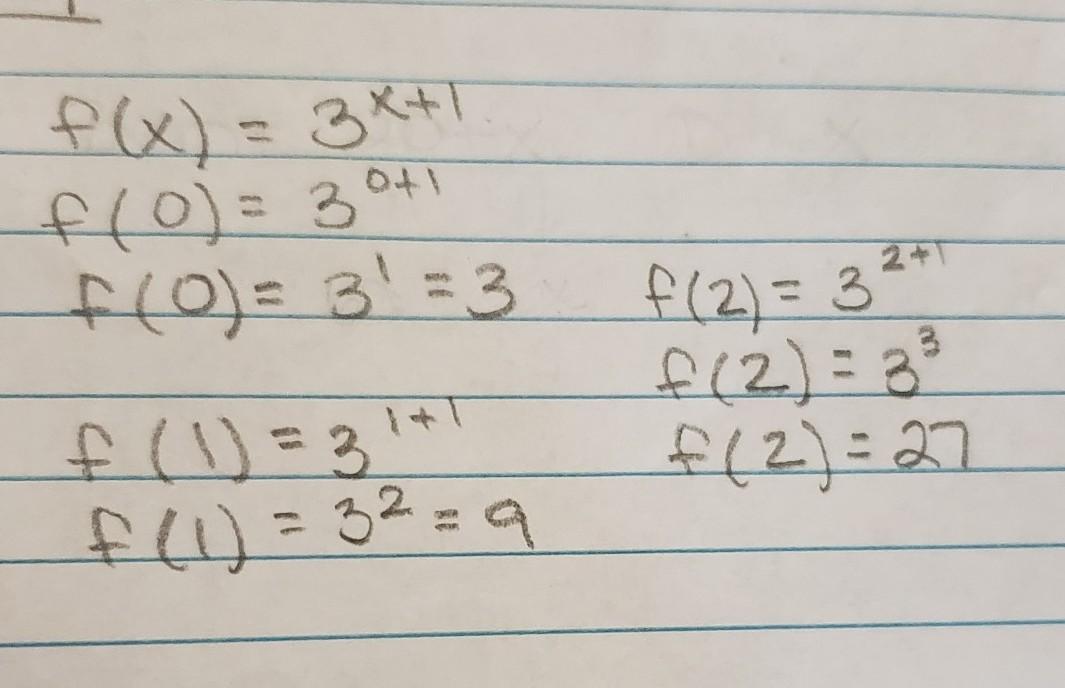 f(x) = 3^{x+1}
f(0) = 3^{0+1}
f(0) = 3^1 = 3
f(1) = 3^{1+1}
f(1) = 3^2 = 9
f(2) = 3^{2+1}
f(2) = 3^3
f(2) = 27